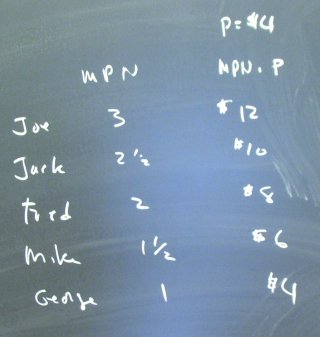 P = $4
MPN MPN · P
Joe 3 $12
Jack 2 1/2 $10
Fred 2 $8
Mike 1 1/2 $6
George 1 $4